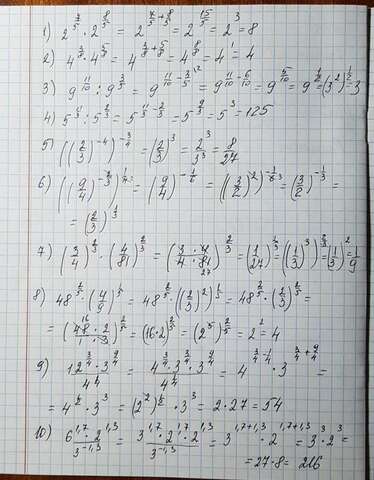 1) 2^(7/5) · 2^(8/5) = 2^(7/5 + 8/5) = 2^(15/5) = 2^3 = 8
2) 4^(3/8) · 4^(5/8) = 4^(3/8 + 5/8) = 4^(8/8) = 4^1 = 4
3) 9^(11/10) : 9^(3/5) = 9^(11/10 - 3/5 \2) = 9^(11/10 - 6/10) = 9^(5/10) = 9^(1/2) = (3^2)^(1/2) = 3
4) 5^(11/3) : 5^(2/3) = 5^(11/3 - 2/3) = 5^(9/3) = 5^3 = 125
5) ((2/3)^(-4))^(-3/4) = (2/3)^3 = 2^3/3^3 = 8/27
6) ((9/4)^(-2/3))^(1/4) = (9/4)^(-1/6) = ((3/2)^2)^(-1/6 3) = (3/2)^(-1/3) =
= (2/3)^(1/3)
7) (3/4)^(2/3) · (4/81)^(2/3) = (3 · 4 / 4 · 81 27)^(2/3) = (1/27)^(2/3) = ((1/3)^3)^(2/3) = (1/3)^2 = 1/9
8) 48^(2/5) · (4/9)^(1/5) = 48^(2/5) · ((2/3)^2)^(1/5) = 48^(2/5) · (2/3)^(2/5) =
= (48 16 · 2 / 1 · 3)^(2/5) = (16·2)^(2/5) = (2^5)^(2/5) = 2^2 = 4
9) 12^(3/4) · 3^(9/4) / 4^(1/4) = 4^(3/4) · 3^(3/4) · 3^(9/4) / 4^(1/4) = 4^(3/4 - 1/4) · 3^(3/4 + 9/4) =
= 4^(1/2) · 3^3 = (2^2)^(1/2) · 3^3 = 2 · 27 = 54
10) 6^(1,7) · 2^(1,3) / 3^(-1,3) = 3^(1,7) · 2^(1,7) · 2^(1,3) / 3^(-1,3) = 3^(1,7+1,3) · 2^(1,7+1,3) = 3^3 · 2^3 =
= 27·8 = 216